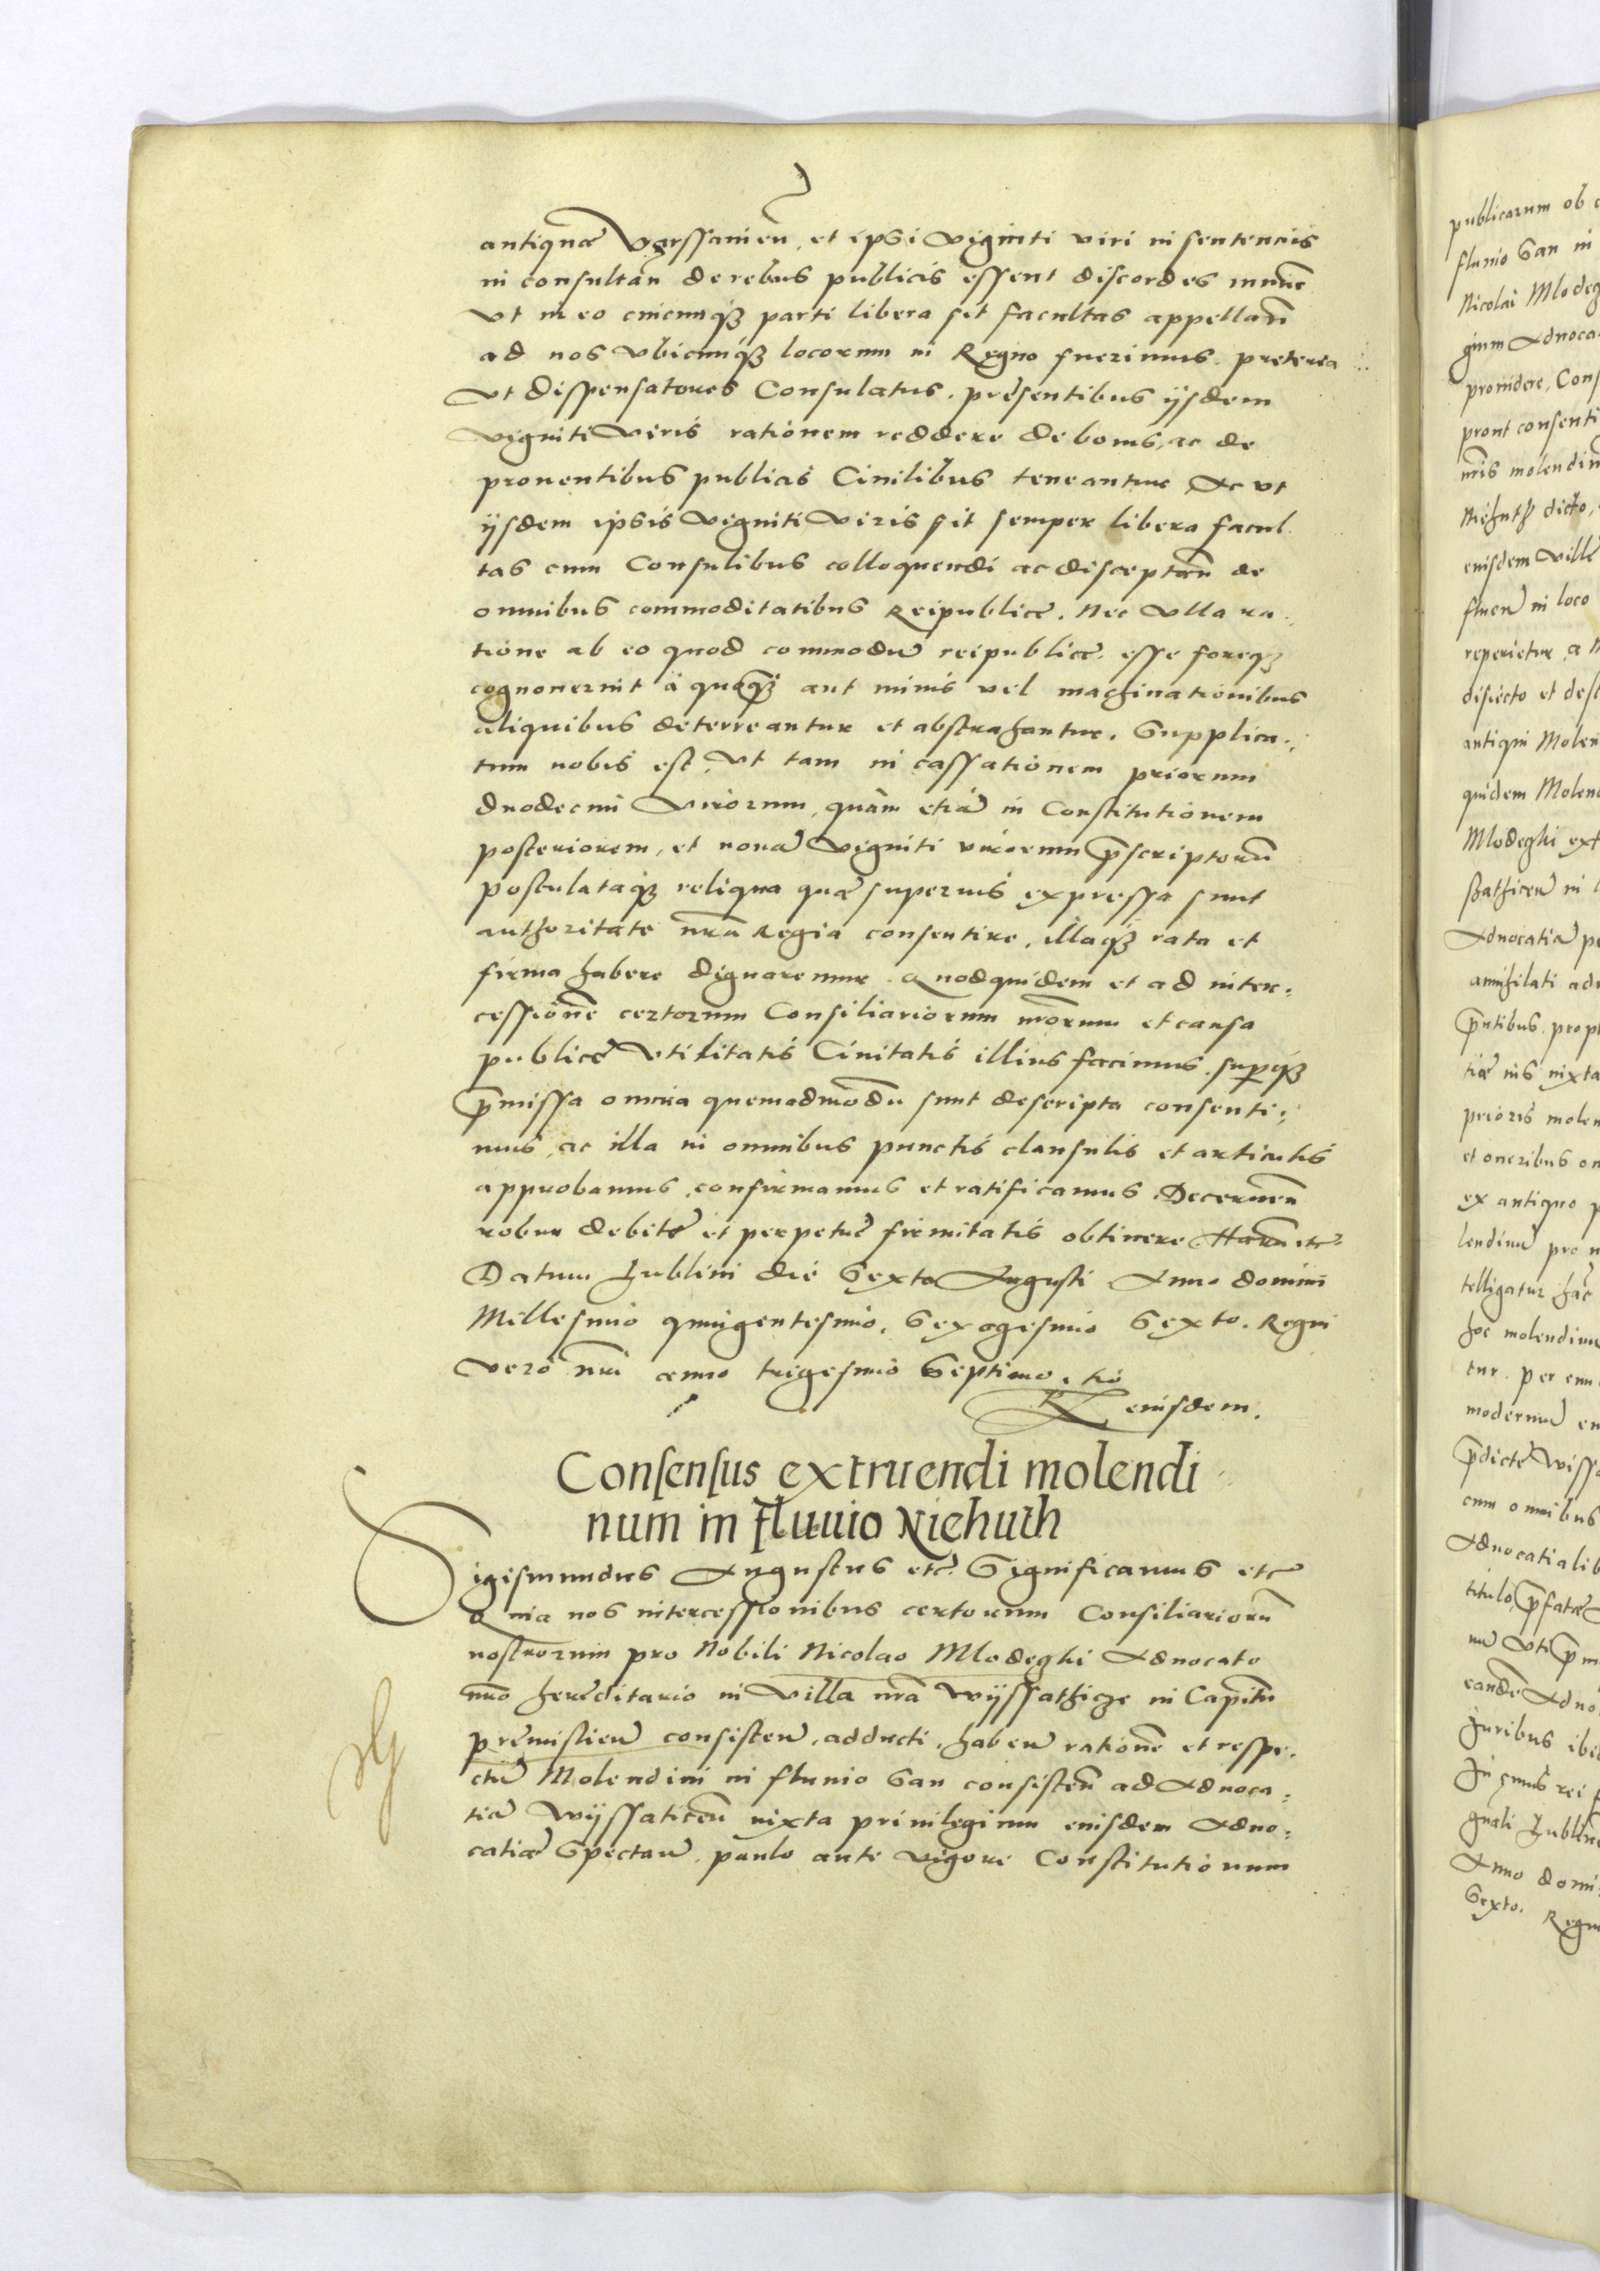 antiquae Varssavien̄, et ipsi viginti viri in sentenciis
in consultan̄ de rebus publicis essent discordes invicē
Vt in eo cuicunq₃ parti libera sit facultas appellan̄
ad nos vbicunq₃ locorum in Regno fuerimus. preterea
Vt dispensatores Consulatus, presentibus ijsdem
viginti Viris rationem reddere de bonis, ac de
proventibus publicis Civilibus teneantur Ac vt
ijsdem ipsis viginti Viris sit semper libera facul
tas cum Consulibus colloquendi ac disceptan̄ de
omnibus commoditatibus Reipublicę. Nec Vlla ra-
tione ab eo quod commodū reipublicę esse foreq₃
cognoverint à quoq̄₃ aut minis vel machinationibus
aliquibus deterreantur et abstrahantur. Supplica-
tum nobis est, Vt tam in cassationem priorum
duodecim Virorum, quàm etiā in Constitutionem
posteriorem, et novā viginti virorum p̄scriptorū
postulataq₃ reliqua quæ superius expressa sunt
authoritate nr̄a Regia consentire, illaq₃ rata et
firma habere dignaremur. Quodquidem et ad inter-
cessionē certorum Consiliariorum nr̄orum et causa
publicę Vtilitatis Civitatis illius facimus. superq₃
p̄missa omnia quemadmodū sunt descripta consenti-
mus, ac illa in omnibus punctis clausulis et articulis
approbamus, confirmamus et ratificamus Decernen̄
robur debitę et perpetuę firmitatis obtinere Harū etc
Datum Lublini die Sexta Augusti Anno domini
Millesimo quingentesimo, Sexagesimo Sexto. Regni
Vero nr̄i anno trigesimo Septimo. R̄tio
eiusdem.
Consensus extruendi molendi
num in fluuio Niehuth
Sigismundus Augustus etc. Significamus etc
Quia nos intercessionibus certorum Consiliariorū
nostrorum pro Nobili Nicolao Mlodeghi Advocato
nr̄o hereditario in Villa nr̄a Wijssathicze in Capitn̄
premislien̄ consisten̄, adducti. haben̄ rationē et respe-
ctū Molendini in fluvio San consisten̄ ad Advoca-
tiā Wijssaticen̄ iuxta privilegium eiusdem Advo-
catiæ Spectan̄, paulo ante vigore Constitutionum
publicarum ob
fluvio San in
Nicolai Mlodeg
gium Advoca
providere, Cons
prout consenti
mis molendin
Niehuth dicto,
eiusdem Villę
fluen̄ in loco
reperietur, a
disiecto et des
antiqui Molen
quidem Molen
Mlodeghi ext
ssathicen̄ in
Advocatiā pe
annihilati ad
p̄ntibus. prop
tiæ iuxta
prioris molen
et oneribus on
ex antiquo p
lendinū pro
telligatur hāc
hoc molendinū
tur. per
modernū
p̄dictę Wissa
cum omnibus
Advocatialib
titulo p̄fatæ
Vti p̄m
eandē Advo
Juribus ibi
In cuius rei f
Lublin
Anno domi
Sexto. Regn